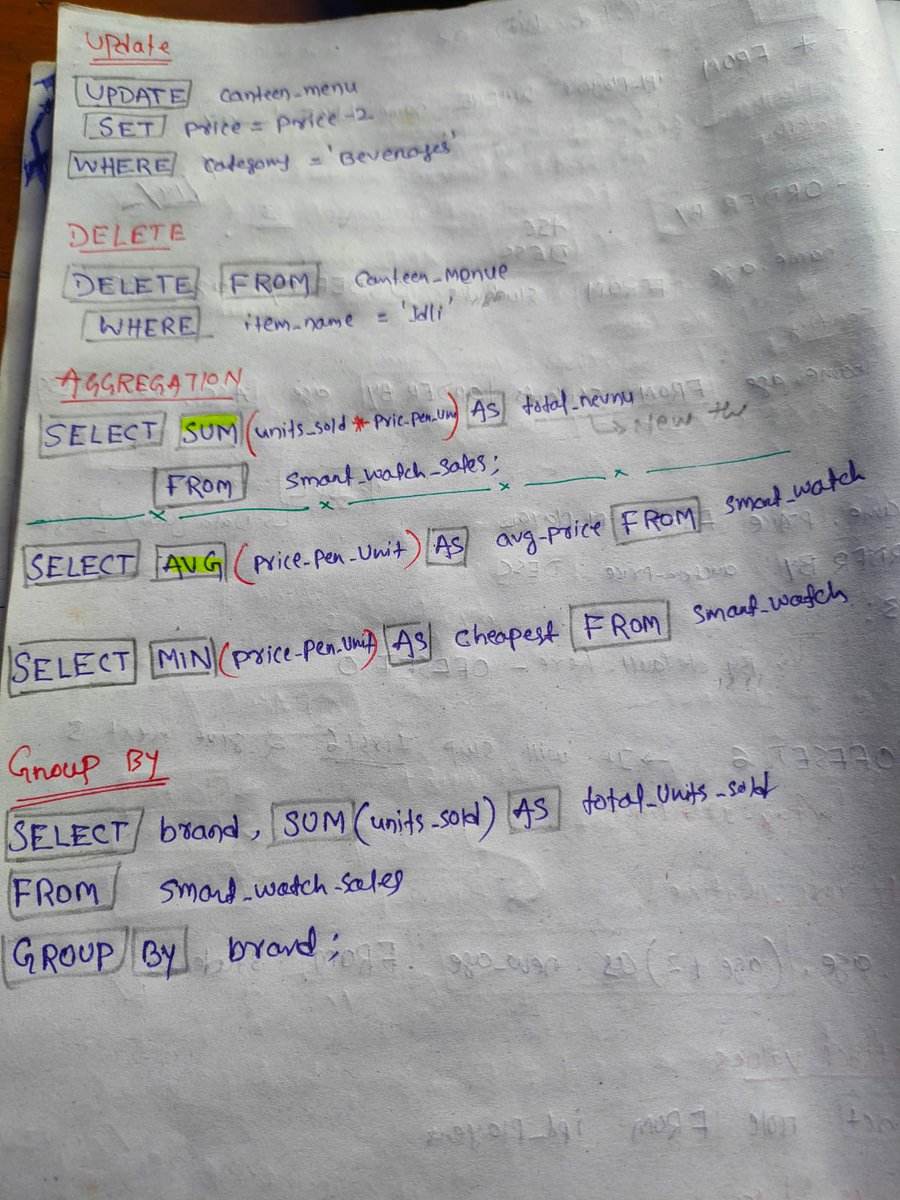 Update
UPDATE canteen_menu
SET price = price-2
WHERE category = 'Beverages'
DELETE
DELETE FROM canteen_menue
WHERE item_name = 'Idli'
AGGREGATION
SELECT SUM (units_sold * Pric_per_unit) AS total_revnu
FROM smart_watch_sales;
SELECT AVG (price_per_unit) AS avg_price FROM smart_watch
SELECT MIN (price_per_unit) AS cheapest FROM smart_watch
Group By
SELECT brand, SUM (units_sold) AS total_units_sold
FROM smart_watch_sales
GROUP By brand;